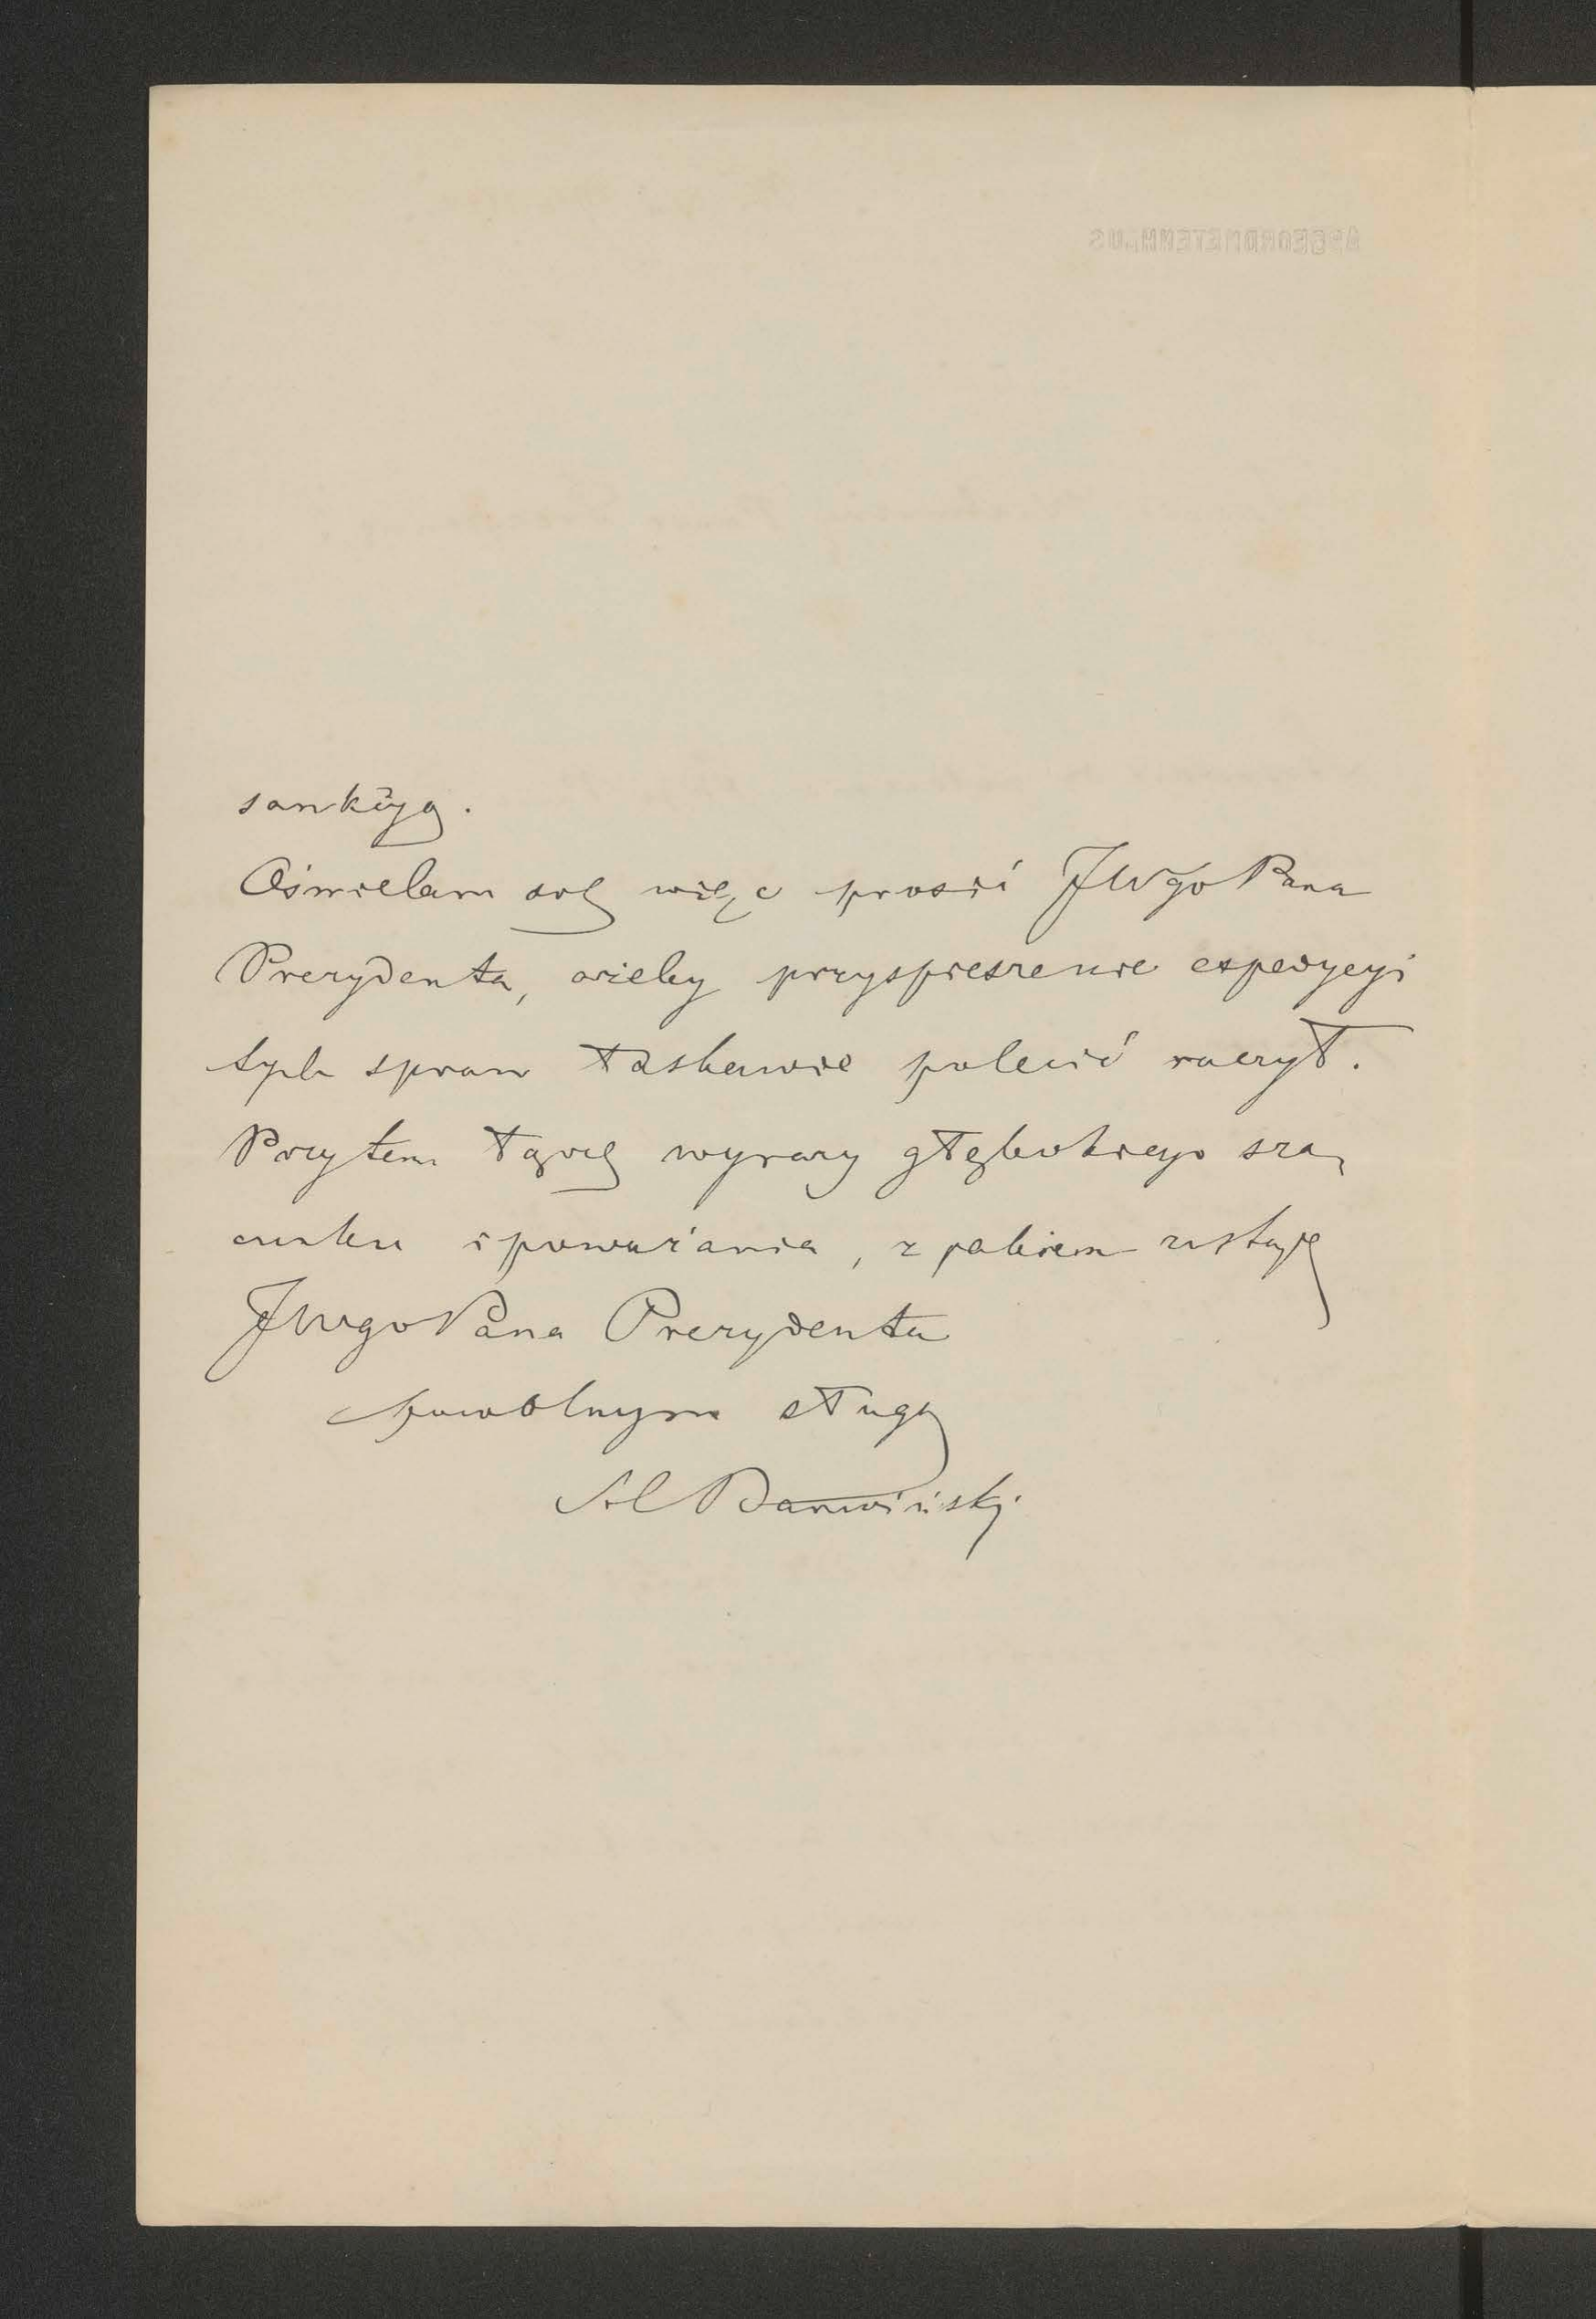 ABGEORDNETENHAUS
sankcyą.
Ośmielam się więc prosić JWgo Pana
Prezydenta, ażeby przyspieszenie expedycyi
tych spraw łaskawie polecić raczył.
Przytem łączę wyrazy głębokiego sza-
cunku i poważania, z jakiem zostaję
JWgo Pana Prezydenta
powolnym sługą
Al Barwiński